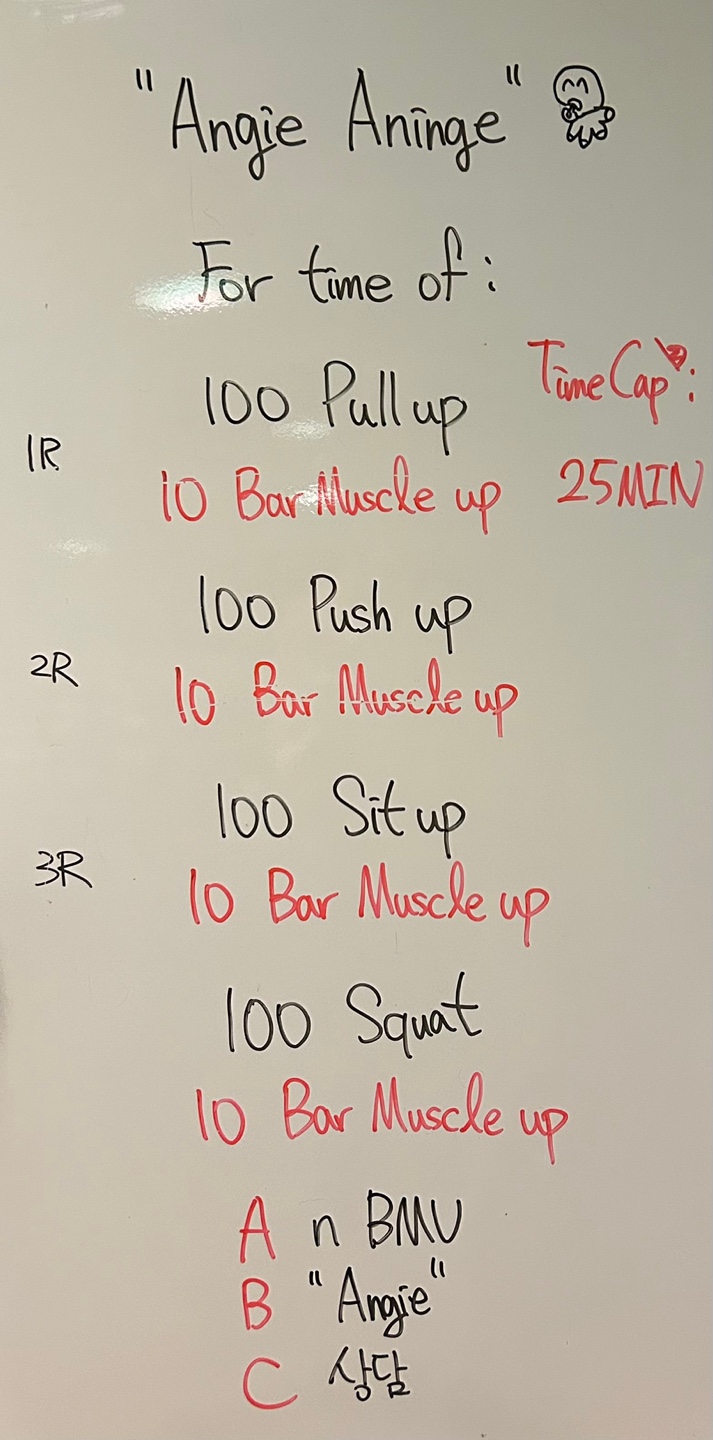 "Angie Aninge"
For time of :
100 Pull up
Time Cap :
1R
10 Bar Muscle up
25MIN
100 Push up
2R
10 Bar Muscle up
100 Sit up
3R
10 Bar Muscle up
100 Squat
10 Bar Muscle up
A n BMU
B "Angie"
C 상담